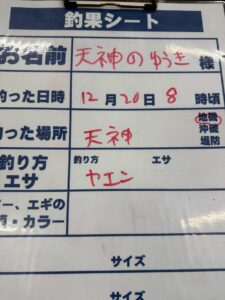 釣果シート
お名前 天神のゆうき 様
釣った日時 12月20日8時頃
釣った場所 天神 地磯 沖磯 堤防
釣り方 エサ 釣り方 エサ
ヤエン
ー、エギの
・カラー
サイズ
サイズ